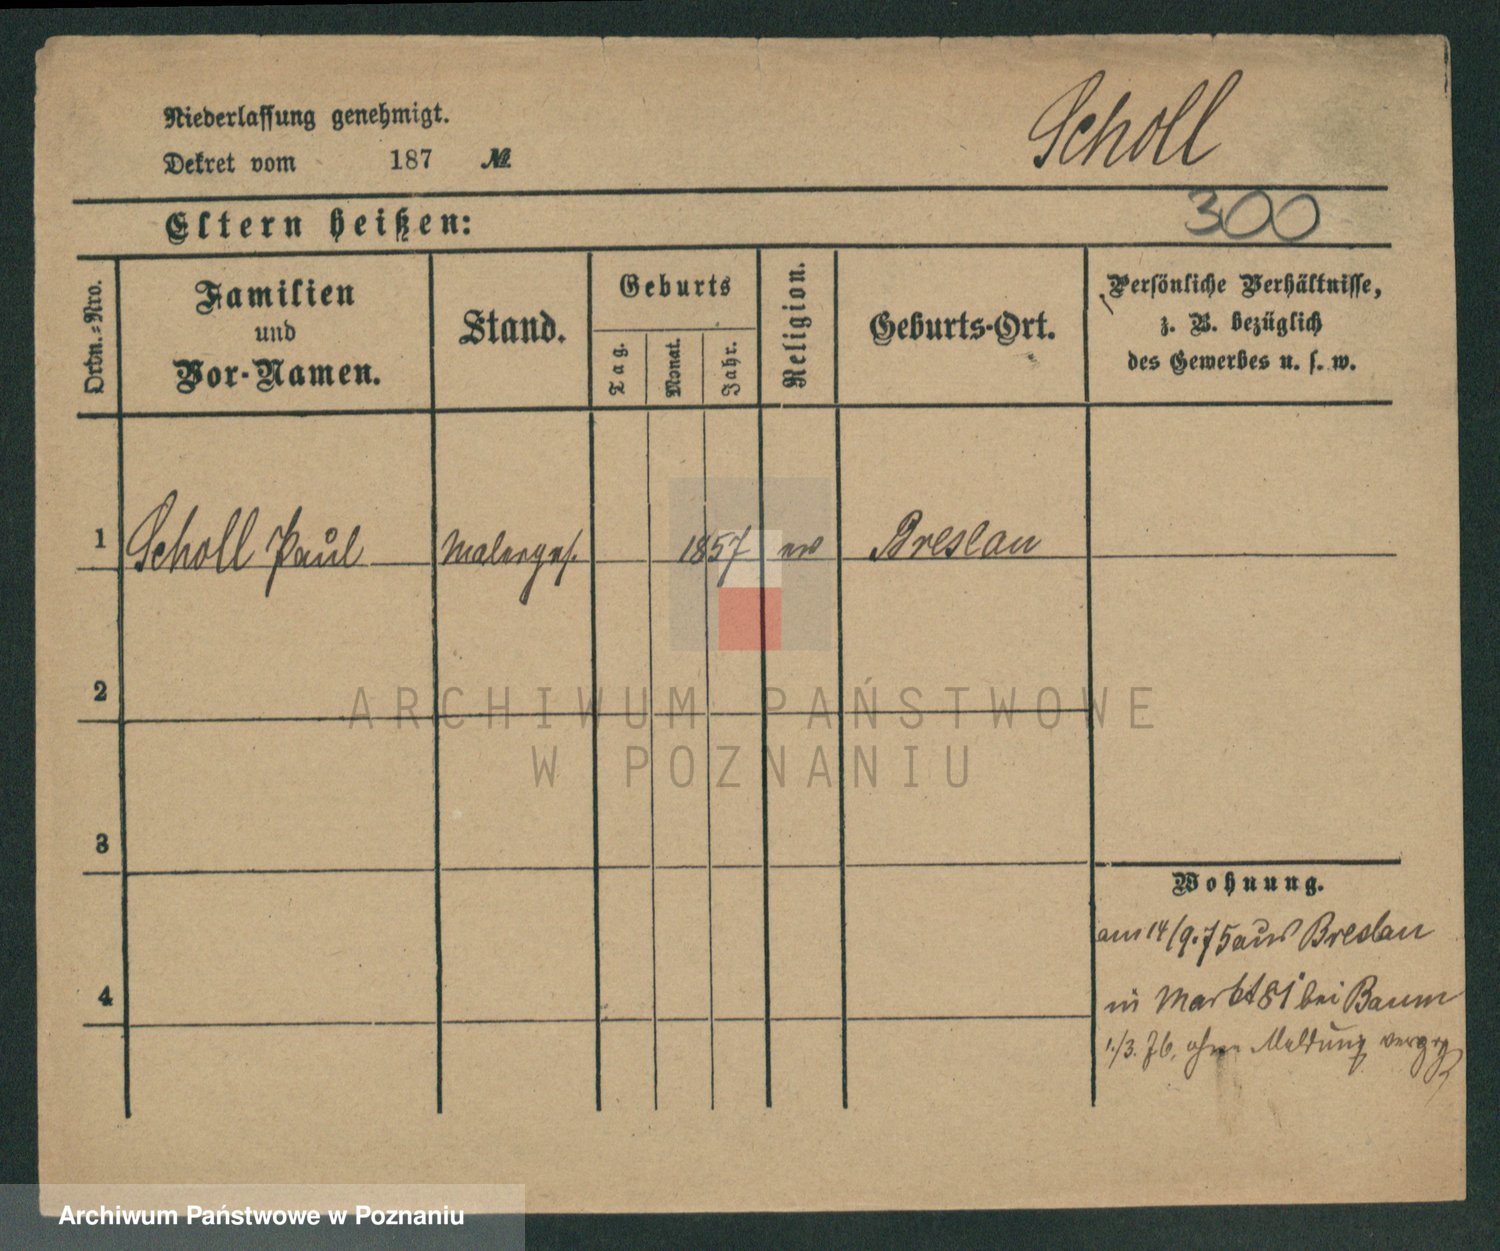 Niederlassung genehmigt.
Dekret vom 187 №
Scholl
Eltern heißen:
300
Ordn.=Nro.
Familien
und
Vor-Namen.
Stand.
Geburts
Tag.
Monat.
Jahr.
Religion.
Geburts-Ort.
Persönliche Verhältnisse,
z. B. bezüglich
des Gewerbes u. s. w.
1 Scholl Paul Malerges. 1857 ev Breslau
2
ARCHIWUM PAŃSTWOWE
W POZNANIU
3
Wohnung.
am 14/9.75 aus Breslau
4
in Markt 81 bei Baum
1./3. 76. ohne Meldung
Archiwum Państwowe w Poznaniu